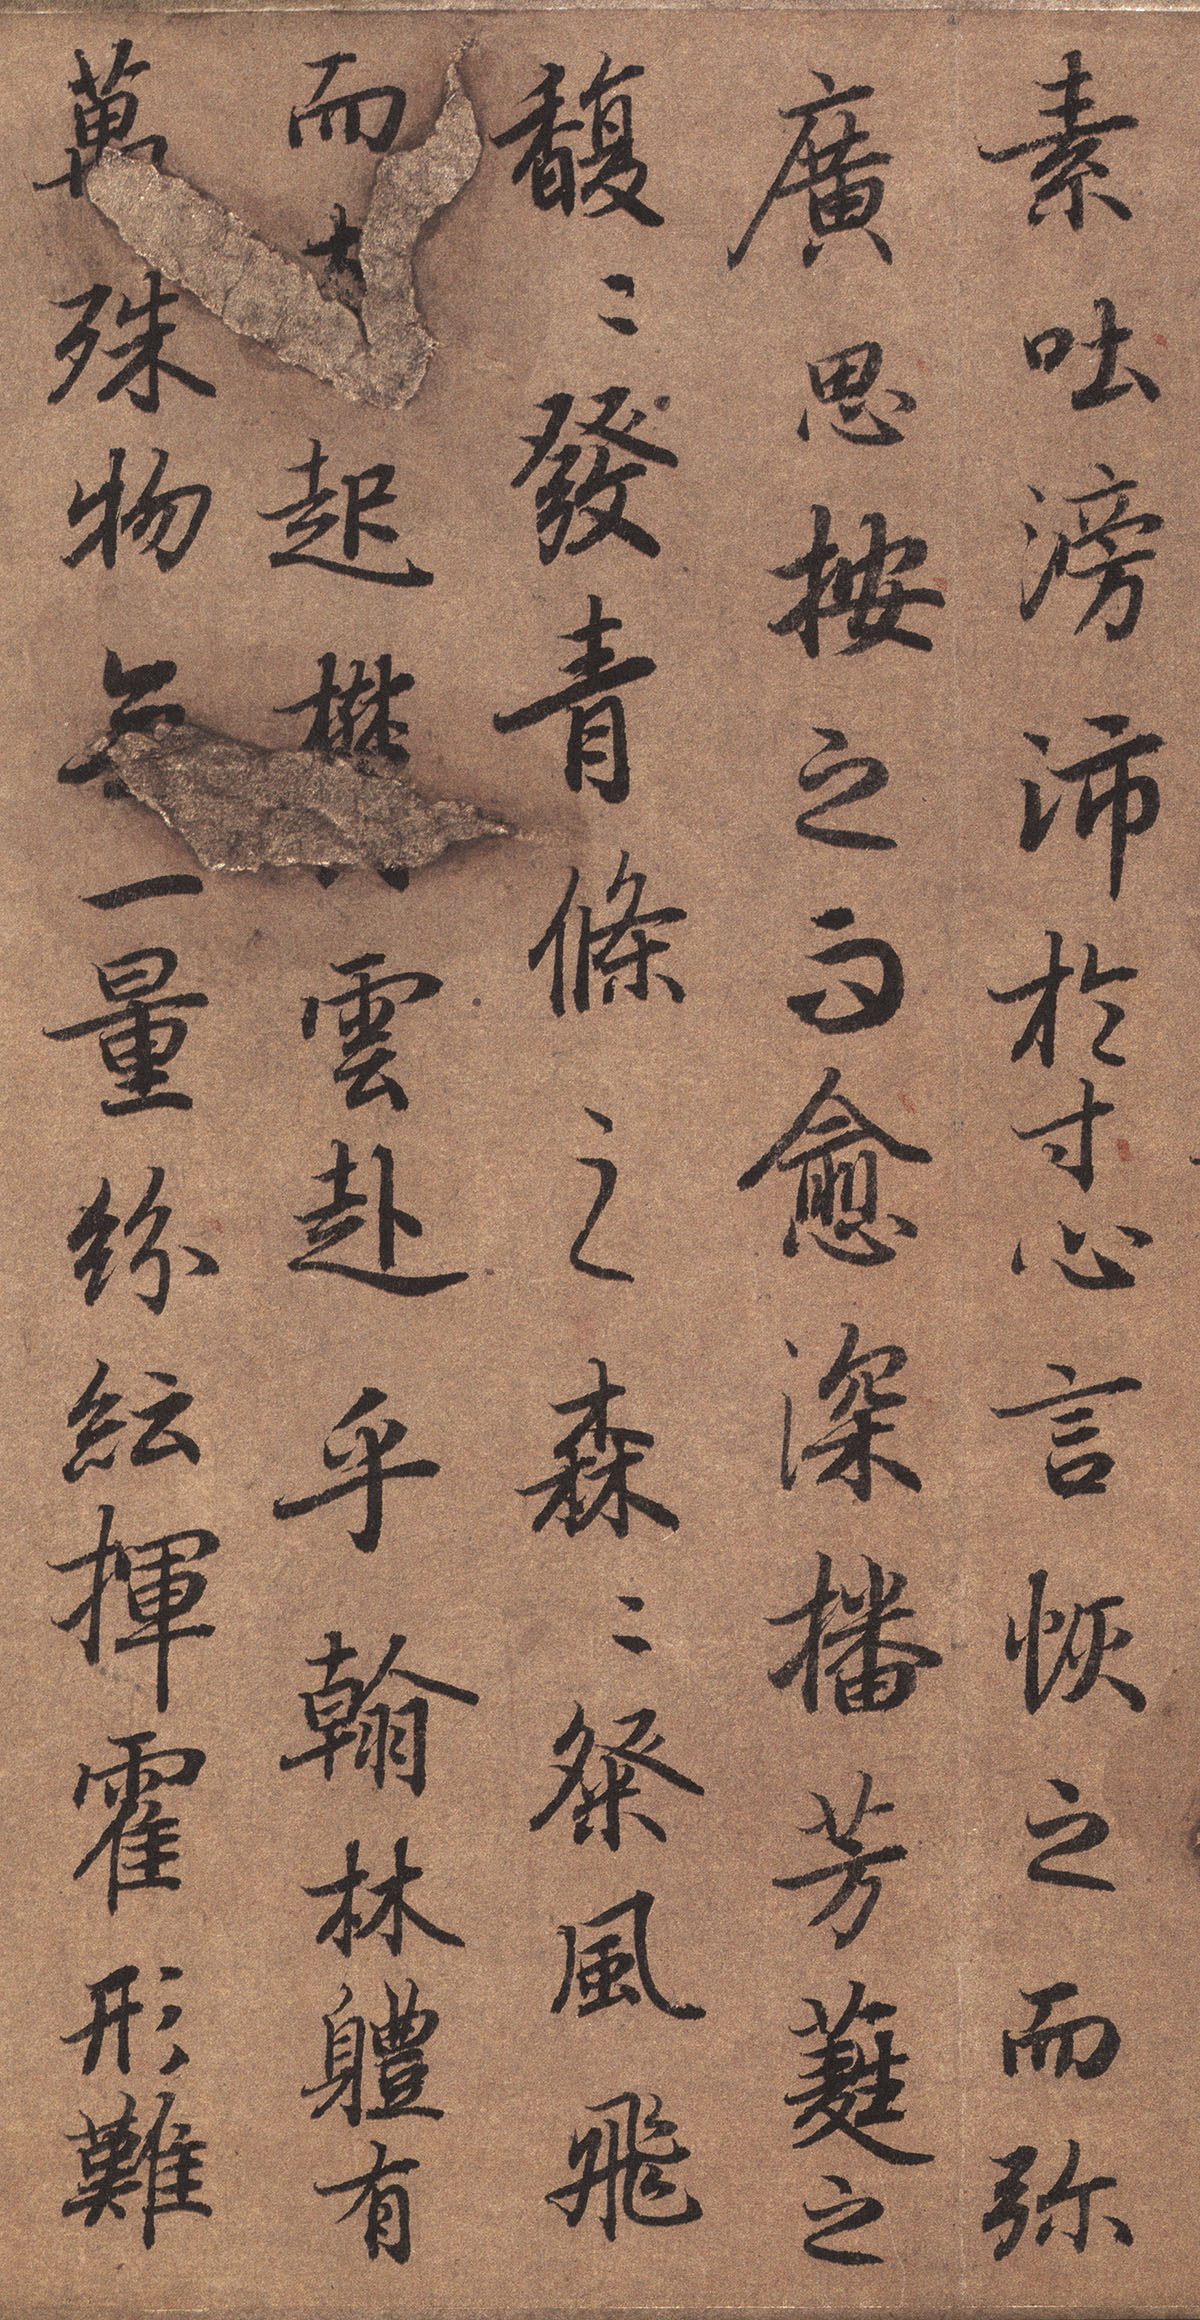 素吐滂沛於寸心言恢之而弥
廣思按之而愈深播芳蕤之
馥〻發青條之森〻粲風飛
而起雲赴乎翰林軆有
萬殊物無一量紛紜揮霍形難